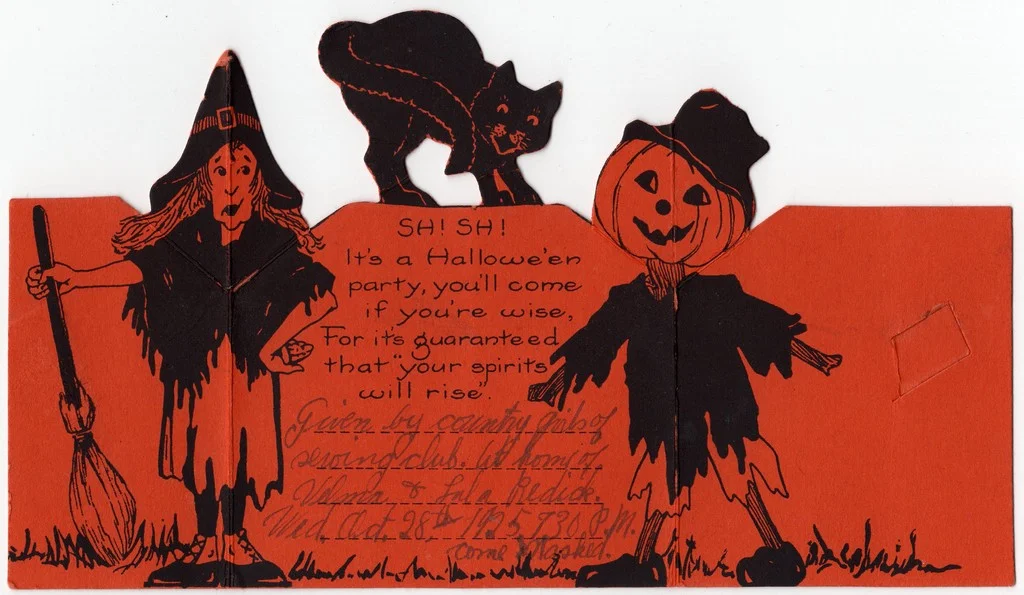 SH! SH!
It's a Hallowe'en
party, you'll come
if you're wise,
For it's guaranteed
that "your spirits
will rise".
Given by country girls of
sewing club. At home of
Velma & Lala Redick.
Wed. Oct. 28th 1925 7:30 P.M.
come Masked.